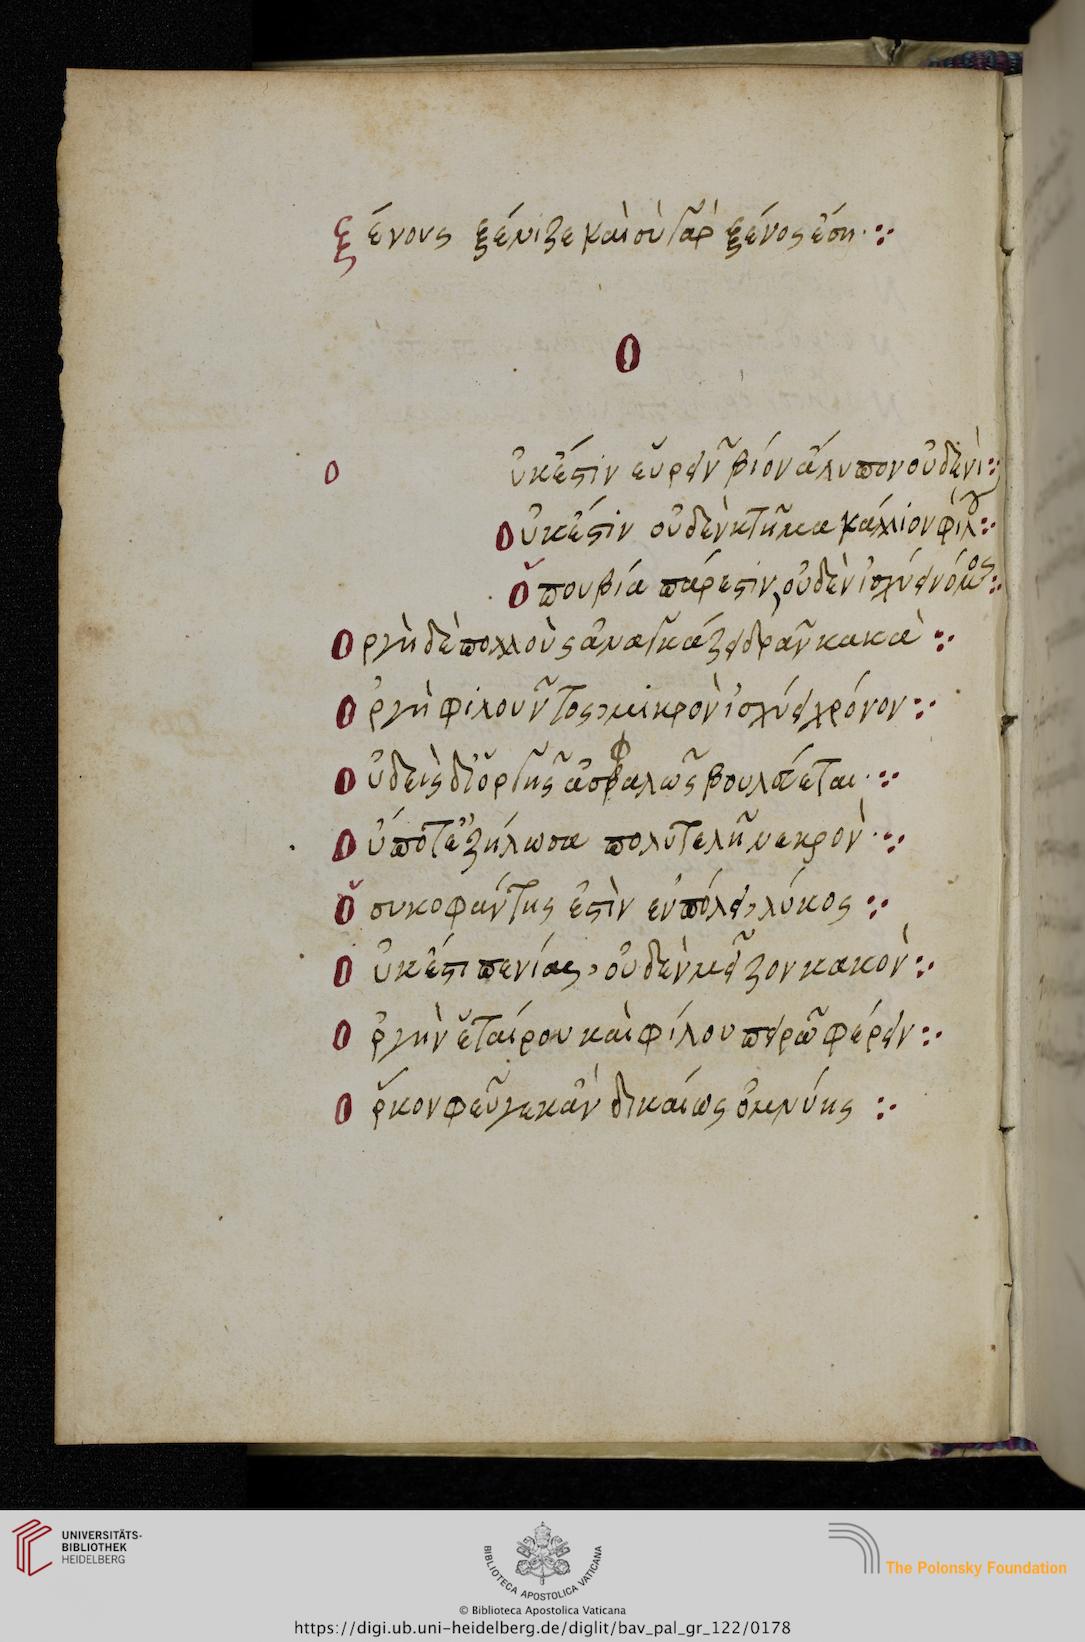 ξένους ξένιζε καὶ σὺ γὰρ ξένος ἔση
Ο
Οὐκ ἔστιν εὑρεῖν βίον ἄλυπον οὐδενὶ
Οὐκ ἔστιν οὐδὲν κτῆμα κάλλιον φίλου
Ὅπου βία πάρεστιν, οὐδὲν ἰσχύει νόμος
Ὀργὴ δὲ πολλοὺς ἀναγκάζει δρᾶν κακὰ
Ὀργὴ φιλοῦντος, μικρὸν ἰσχύει χρόνον
Οὐδεὶς δι' ὀργῆς ἀσφαλῶς βουλεύεται
Οὔποτε ζήλωσα πολυτελῆ νεκρὸν
Ὁ συκοφάντης ἐστὶν ἐν πόλει, λύκος
Οὐκ ἔστι πενίας, οὐδὲν μεῖζον κακὸν
Ὀργὴν ἑταίρου καὶ φίλου πειρῶ φέρειν
Ὅρκον φεῦγε κἂν δικαίως ὀμνύης
UNIVERSITÄTS-
BIBLIOTHEK
HEIDELBERG
BIBLIOTECA APOSTOLICA VATICANA
The Polonsky Foundation
© Biblioteca Apostolica Vaticana
https://digi.ub.uni-heidelberg.de/diglit/bav_pal_gr_122/0178